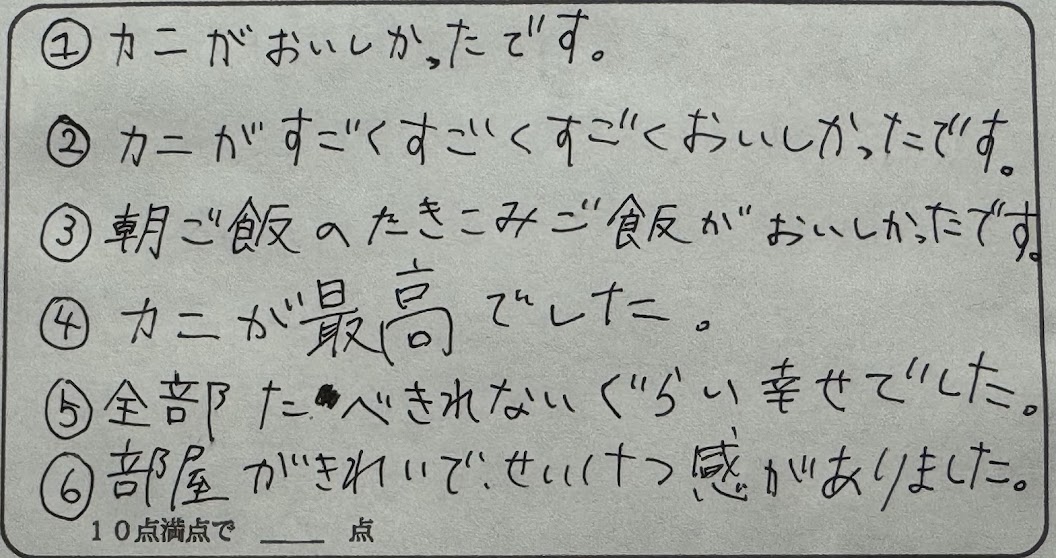 ① カニがおいしかったです。
② カニがすごくすごくすごくおいしかったです。
③ 朝ご飯のたきこみご飯がおいしかったです。
④ カニが最高でした。
⑤ 全部たべきれないぐらい幸せでした。
⑥ 部屋がきれいで、せいけつ感がありました。
10点満点で ____ 点